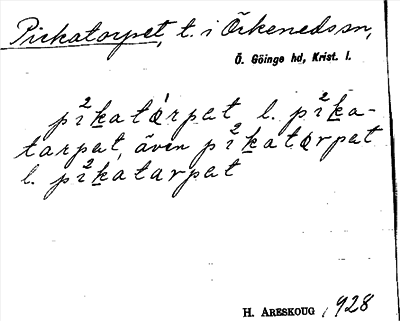 Pirkatorpet, t. i Örkeneds sn,
Ö. Göinge hd, Krist. l.
pi²katórpat l. pi²ka-
tarpat, även pi²katorpat
l. pi²katarpat
H. Areskoug, 1928